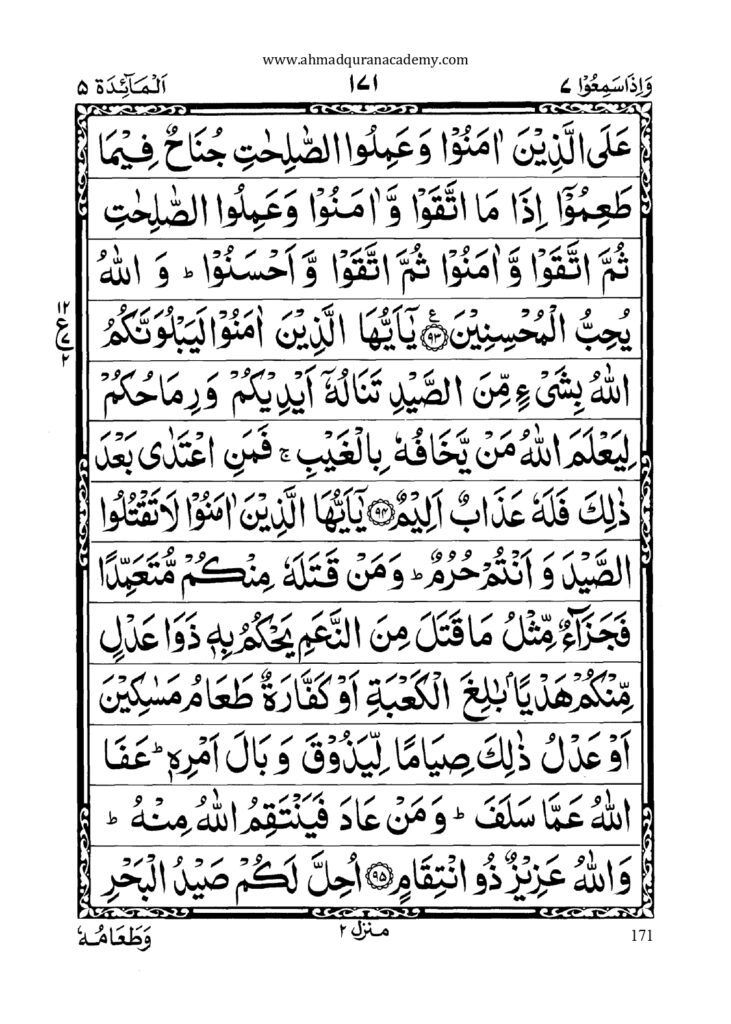 www.ahmadquranacademy.com
وَاِذَا سَمِعُوۡا ۷ ۱۷۱ اَلۡمَآئِدَة ۵
عَلَى الَّذِيۡنَ اٰمَنُوۡا وَعَمِلُوا الصّٰلِحٰتِ جُنَاحٌ فِيۡمَا
طَعِمُوۡۤا اِذَا مَا اتَّقَوۡا وَّاٰمَنُوۡا وَعَمِلُوا الصّٰلِحٰتِ
ثُمَّ اتَّقَوۡا وَّاٰمَنُوۡا ثُمَّ اتَّقَوۡا وَّاَحۡسَنُوۡا ؕ وَ اللّٰهُ
يُحِبُّ الۡمُحۡسِنِيۡنَ ۹۳ ع يٰۤاَيُّهَا الَّذِيۡنَ اٰمَنُوۡا لَيَبۡلُوَنَّكُمُ
۱۲ ع ۷ ۲
اللّٰهُ بِشَىۡءٍ مِّنَ الصَّيۡدِ تَنَالُهٗۤ اَيۡدِيۡكُمۡ وَرِمَاحُكُمۡ
لِيَعۡلَمَ اللّٰهُ مَنۡ يَّخَافُهٗ بِالۡغَيۡبِ ۚ فَمَنِ اعۡتَدٰى بَعۡدَ
ذٰلِكَ فَلَهٗ عَذَابٌ اَلِيۡمٌ ۹۴ يٰۤاَيُّهَا الَّذِيۡنَ اٰمَنُوۡا لَا تَقۡتُلُوا
الصَّيۡدَ وَ اَنۡتُمۡ حُرُمٌ ؕ وَمَنۡ قَتَلَهٗ مِنۡكُمۡ مُّتَعَمِّدًا
فَجَزَآءٌ مِّثۡلُ مَا قَتَلَ مِنَ النَّعَمِ يَحۡكُمُ بِهٖ ذَوَا عَدۡلٍ
مِّنۡكُمۡ هَدۡيًاۢ بٰلِغَ الۡكَعۡبَةِ اَوۡ كَفَّارَةٌ طَعَامُ مَسٰكِيۡنَ
اَوۡ عَدۡلُ ذٰلِكَ صِيَامًا لِّيَذُوۡقَ وَبَالَ اَمۡرِهٖ ؕ عَفَا
اللّٰهُ عَمَّا سَلَفَ ؕ وَمَنۡ عَادَ فَيَنۡتَقِمُ اللّٰهُ مِنۡهُ ؕ
وَاللّٰهُ عَزِيۡزٌ ذُو انۡتِقَامٍ ۹۵ اُحِلَّ لَـكُمۡ صَيۡدُ الۡبَحۡرِ
171 منزل ۲ وَطَعَامُهٗ